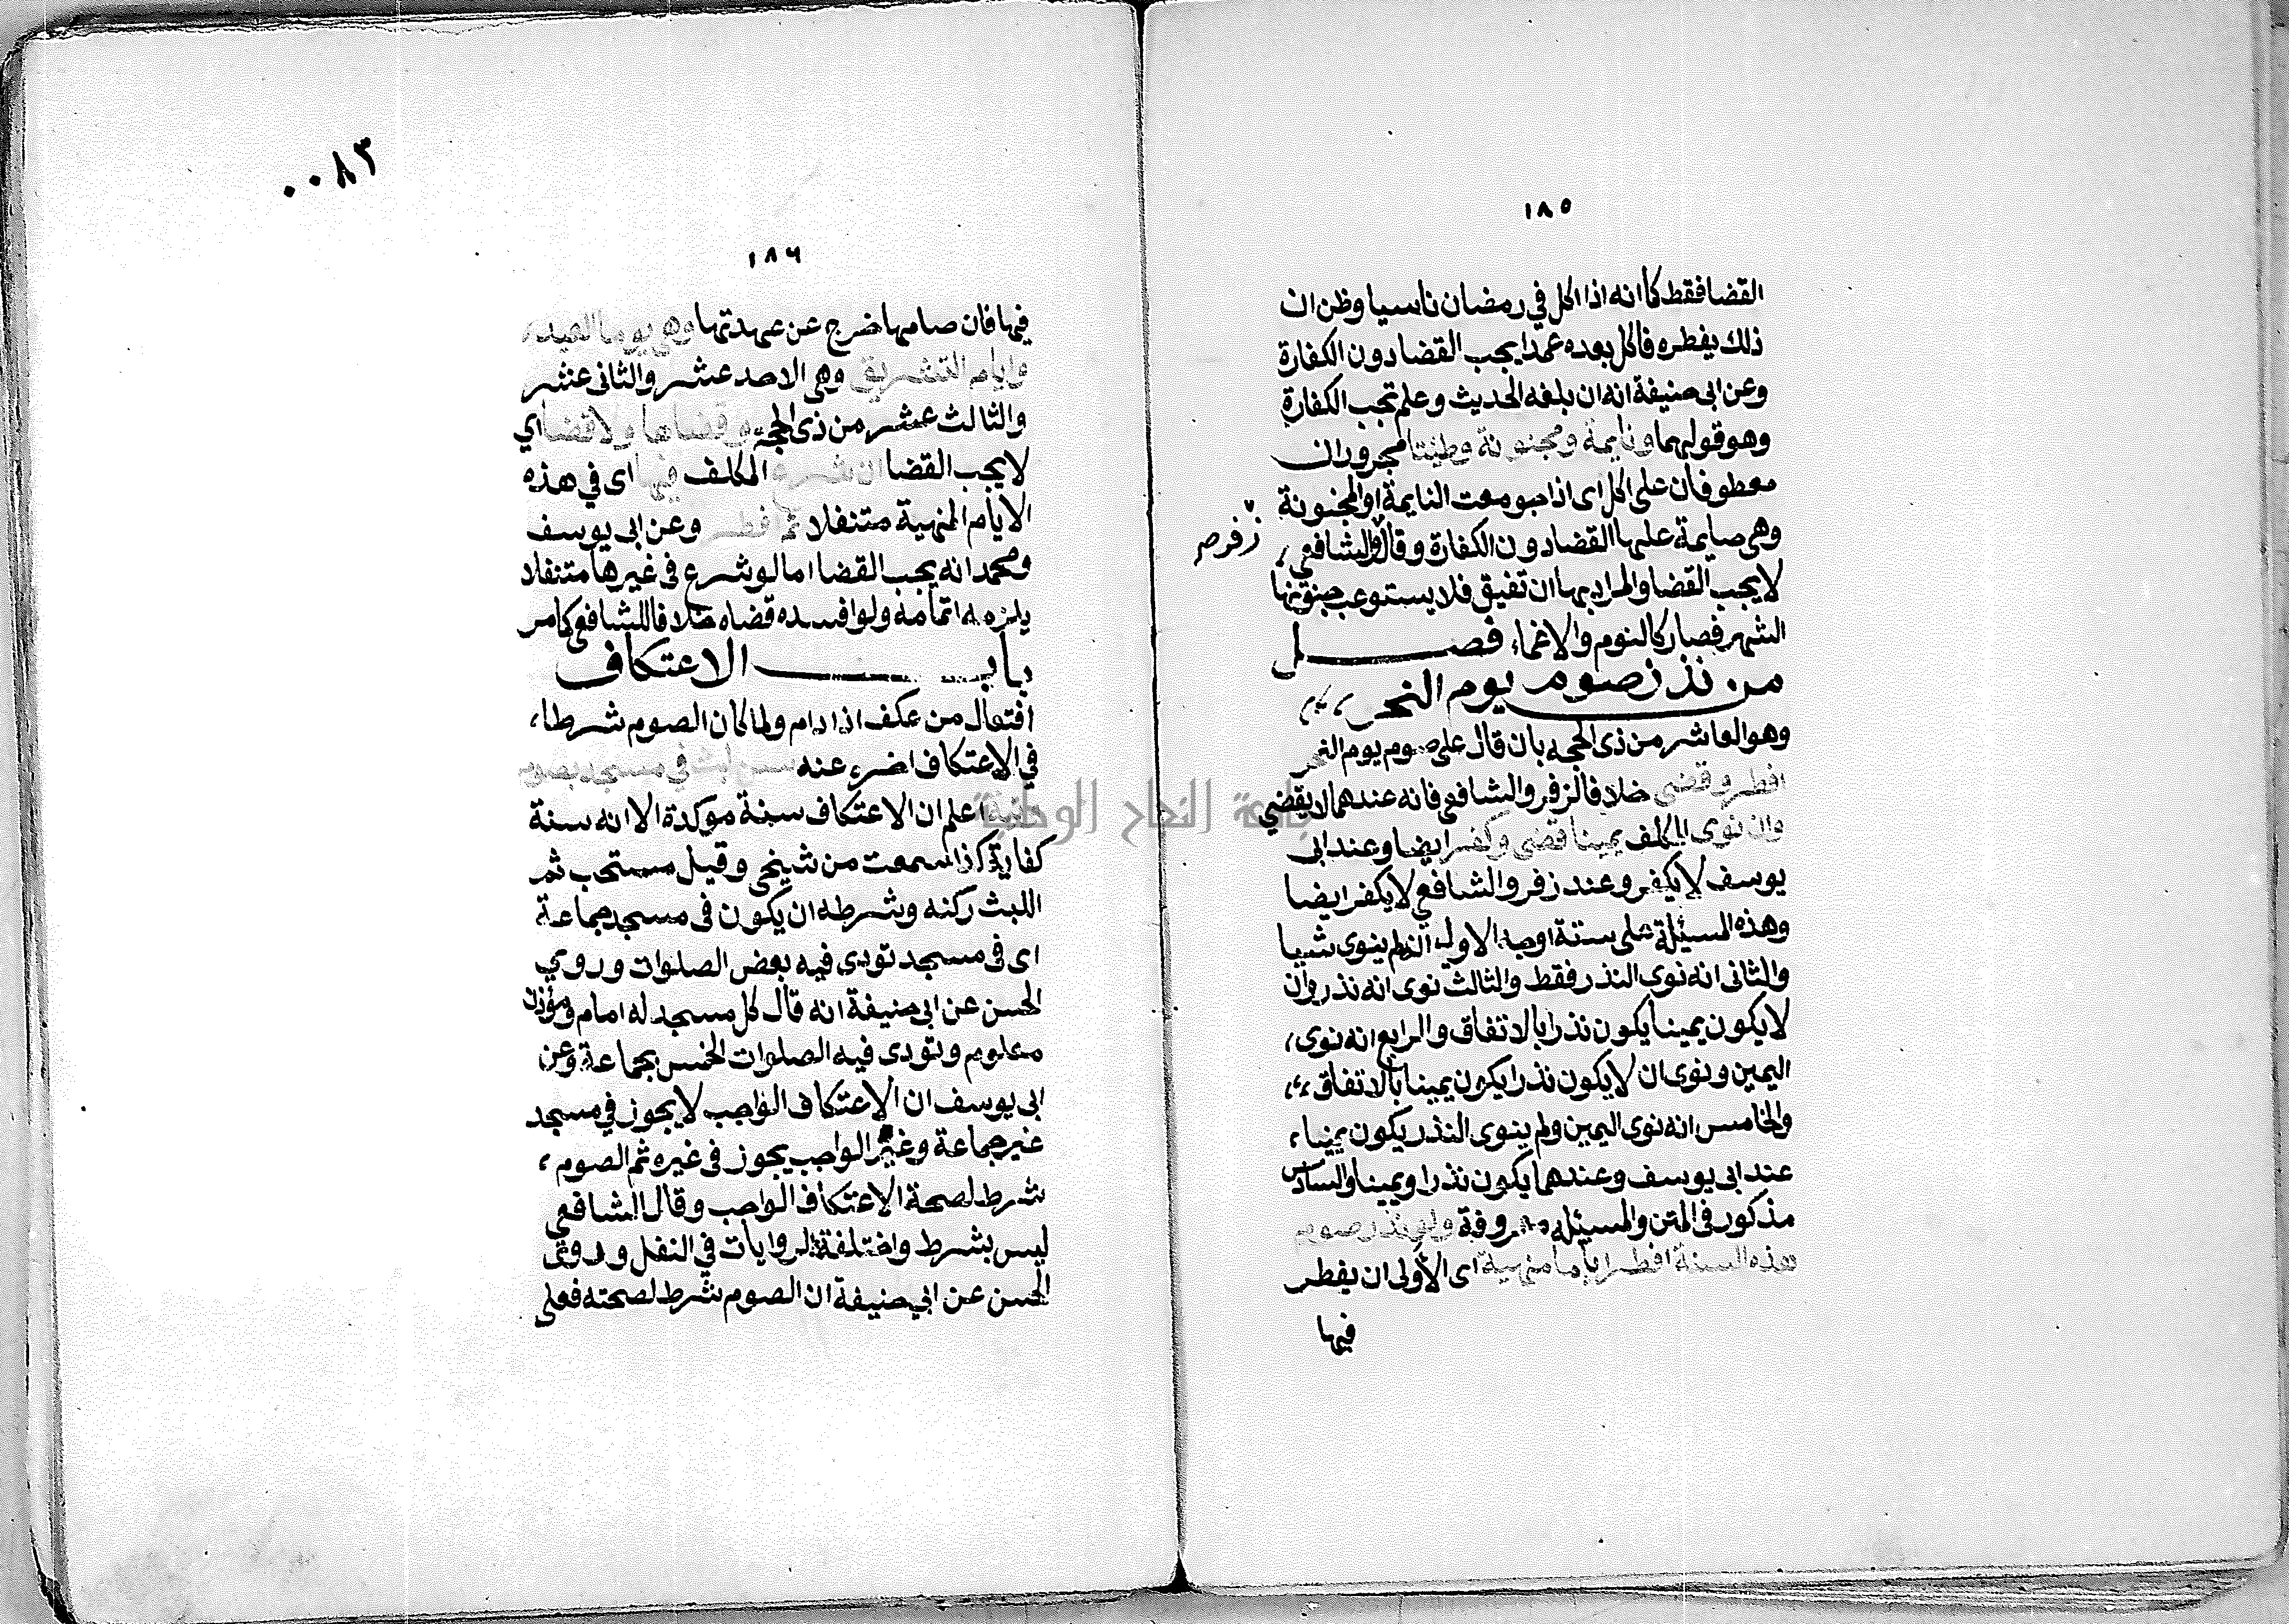 ١٨٥
القضا فقط كما انه اذا اكل في رمضان ناسيا وظن ان
ذلك يفطره فاكل بعده عمدا يجب القضا دون الكفارة
وعن ابى حنيفة انه ان بلغه الحديث وعلم تجب الكفارة
وهو قولهما ونايمة ومجنونة وطئتا مجروران
معطوفان على اكل اى اذا جومعت النايمة او المجنونة
وهى صايمة عليها القضا دون الكفارة وقال والشافعى
زفر صح
لا يجب القضا والمراد بها ان تفيق فلا يستوعب جنونها
الشهر فصار كالنوم والاغماء فصل
من نذر صوم يوم النحر
وهو العاشر من ذى الحجه بان قال على صوم يوم النحر
افطر وقضى خلافا لزفر والشافعى فانه عندهما لا يقضي
وان نوى المكلف يمينا قضى وكفر ايضا وعند ابى
يوسف لا يكفر وعند زفر والشافعي لا يكفر ايضا
وهذه المسئلة على ستة اوجه الاول انه لم ينوى شيا
والثانى انه نوى النذر فقط والثالث نوى انه نذر وان
لا يكون يمينا يكون نذرا بالاتفاق والرابع انه نوى
اليمين ونوى ان لا يكون نذرا يكون يمينا بالاتفاق
والخامس انه نوى اليمين ولم ينوى النذر يكون يمينا
عند ابى يوسف وعندهما يكون نذرا ويمينا والسادس
مذكور فى المتن والمسئله معروفة ولو نذر صوم
هذه السنة افطر اياما منهية اى الأولى ان يفطر
فيها
٠٠٨٣
١٨٦
فيها فان صامها خرج عن عهدتها وهي يوما العيد
وايام التشريق وهى الاحد عشر والثانى عشر
والثالث عشر من ذى الحجة وقضاها ولا قضا اي
لا يجب القضا ان شرع المكلف فيها اى في هذه
الايام المنهية متنفلا ثم افطر وعن ابى يوسف
ومحمد انه يجب القضا اما لو شرع فى غيرها متنفلا
يلزمه اتمامه ولو افسده قضاه خلافا للشافعى كما مر
باب الاعتكاف
افتعال من عكف اذا دام ولما كان الصوم شرطا
في الاعتكاف اخره عنه سن لبث في مسجد بصوم
ونية اعلم ان الاعتكاف سنة مؤكدة الا انه سنة
كفاية كذا سمعت من شيخى وقيل مستحب ثم
اللبث ركنه وشرطه ان يكون فى مسجد جماعة
اى فى مسجد تودى فيه بعض الصلوات وروي
الحسن عن ابى حنيفة انه قال كل مسجد له امام ومؤذن
معلوم وتودى فيه الصلوات الخمس بجماعة وعن
ابى يوسف ان الاعتكاف الواجب لا يجوز في مسجد
غير جماعة وغير الواجب يجوز فى غيره ثم الصوم
شرط لصحة الاعتكاف الواجب وقال الشافعي
ليس بشرط واختلفة الروايات في النفل وروى
الحسن عن ابي حنيفة ان الصوم شرط لصحته فعلى
جامعة النجاح الوطنية